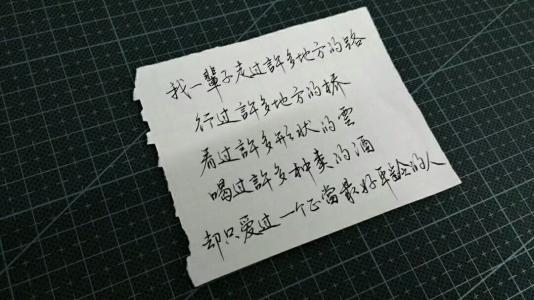 我一辈子走过許多地方的路
行过許多地方的桥
看过許多形状的雲
喝过許多种类的酒
却只爱过一个正當最好年龄的人